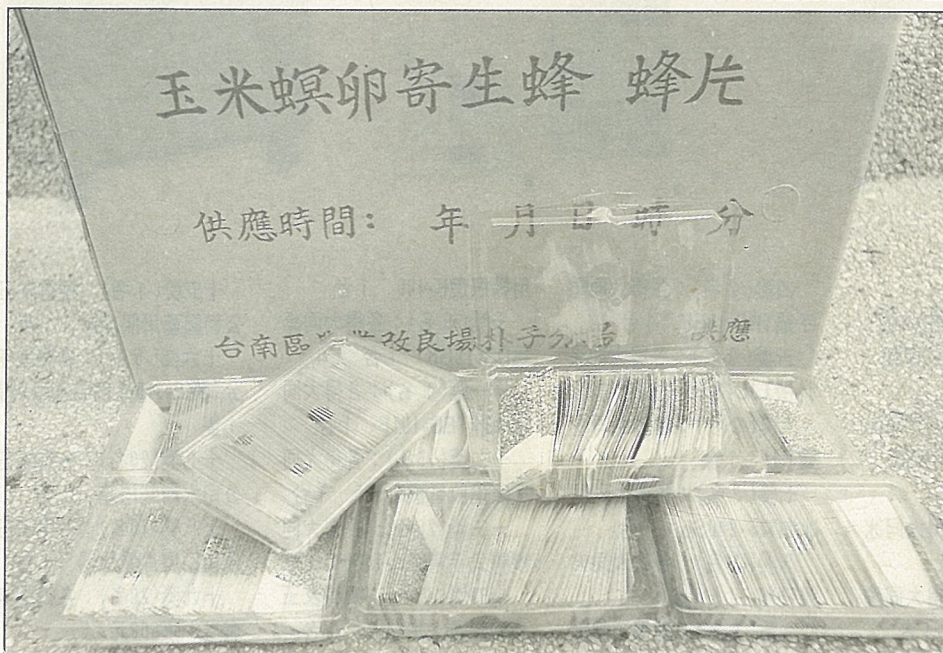 玉米螟卵寄生蜂 蜂片
供應時間: 年 月 日 時 分
台南區農業改良場朴子分場 供應